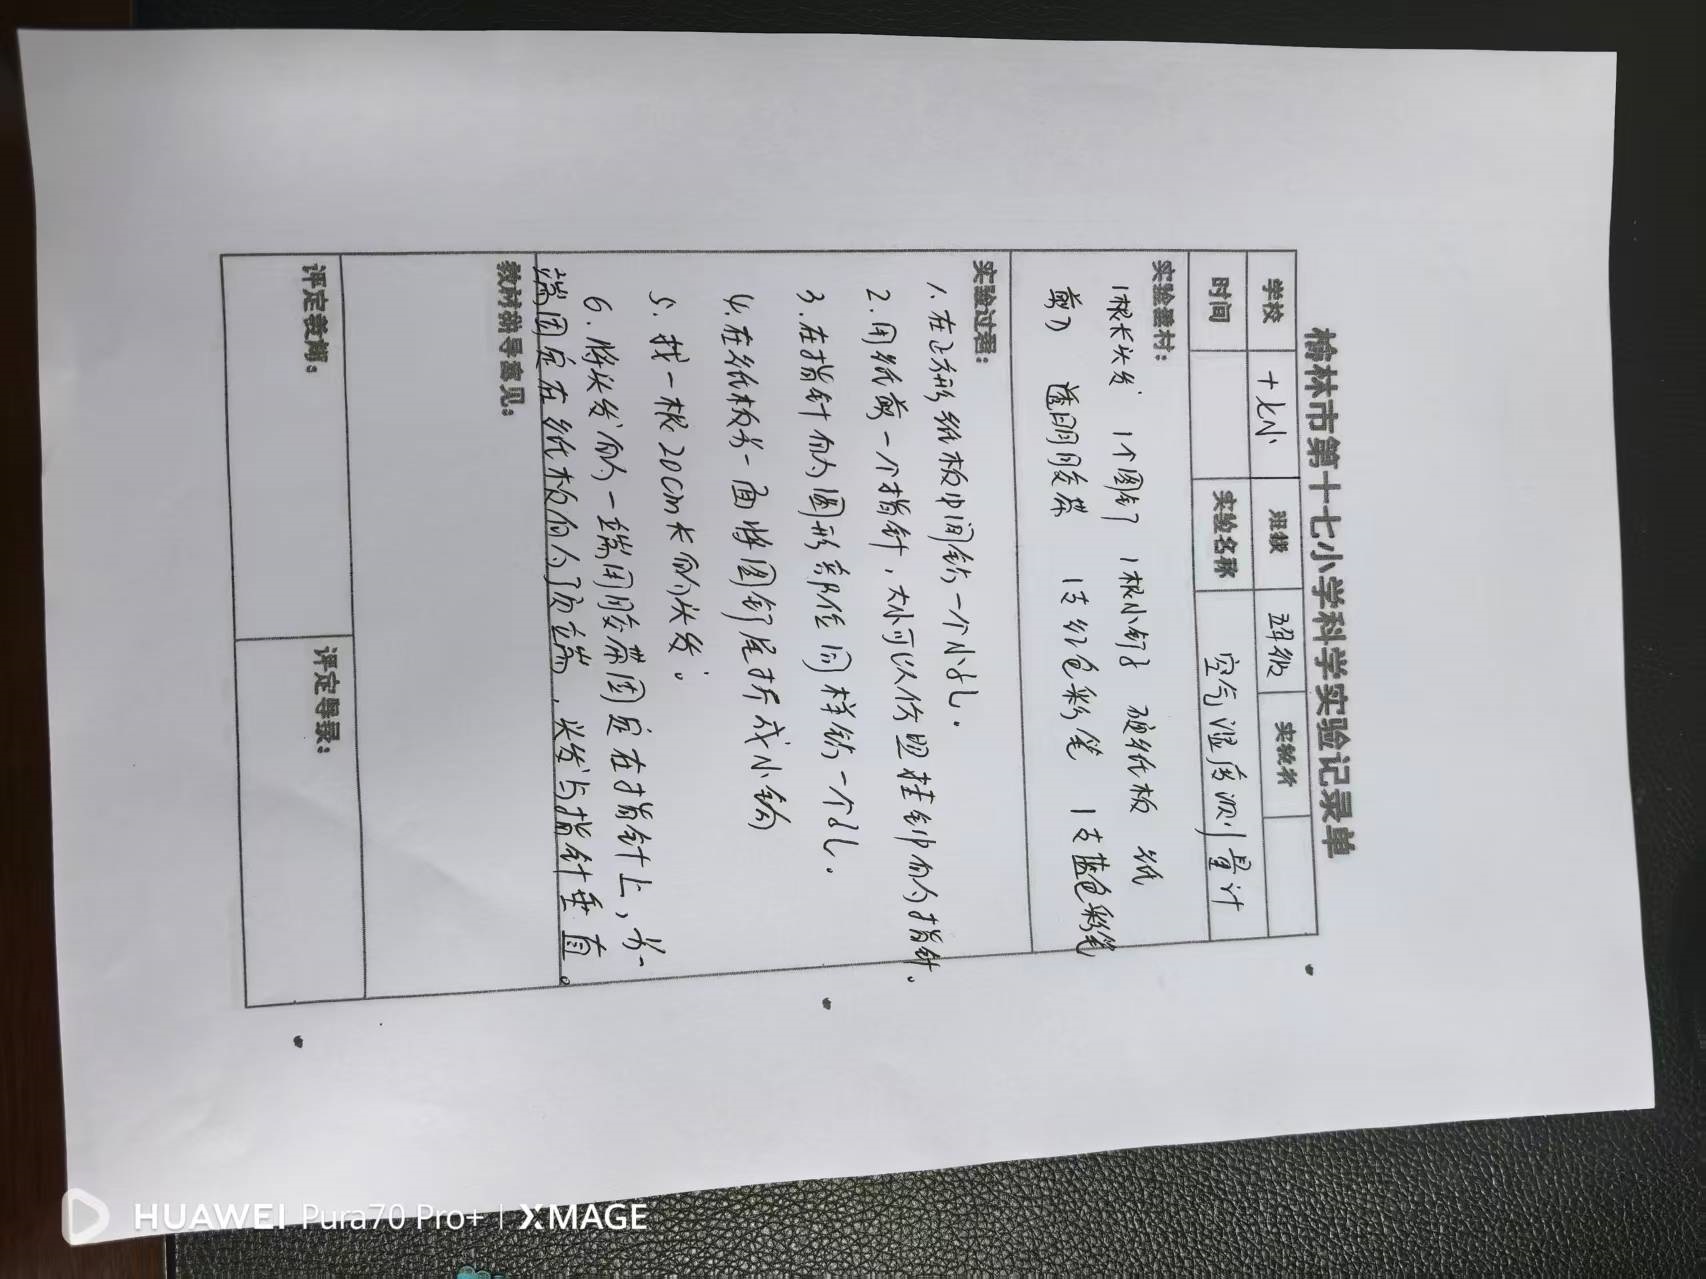 榆林市第十七小学科学实验记录单
学校 十七小 班级 五年级 实验者
时间 实验名称 空气湿度测量计
实验器材：
1根长头发 1个图钉 1根小钉子 硬纸板 纸
剪刀 透明胶带 1支红色彩笔 1支蓝色彩笔
实验过程：
1.在正方形纸板中间钻一个小孔.
2.用纸剪一个指针，大小可以仿照挂钟的指针.
3.在指针的圆形部位同样钻一个孔.
4.在纸板另一面将图钉尾折成小钩
5.找一根20cm长的头发。
6.将头发的一端用胶带固定在指针上，另一
端固定在纸板的顶端，头发与指针垂直。
教材指导意见：
评定教师： 评定等级：
HUAWEI Pura70 Pro+ | XMAGE